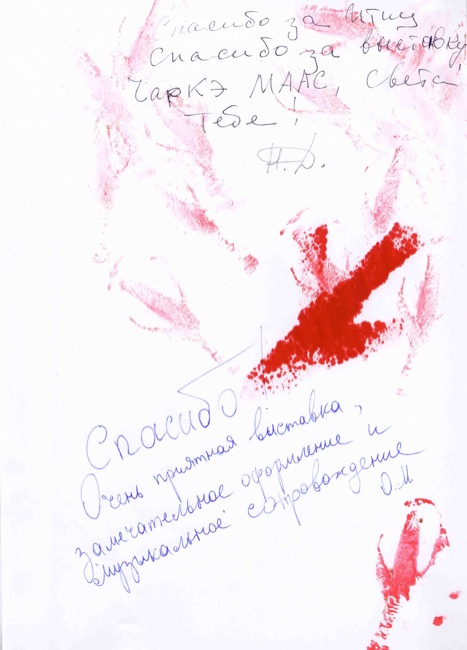 Спасибо за птиц
спасибо за выставку
ЧаРКЭ МААС, Света
Тебе!
Н.Д.
Спасибо!
Очень приятная выставка,
замечательное оформление и
музыкальное сопровождение
О.М